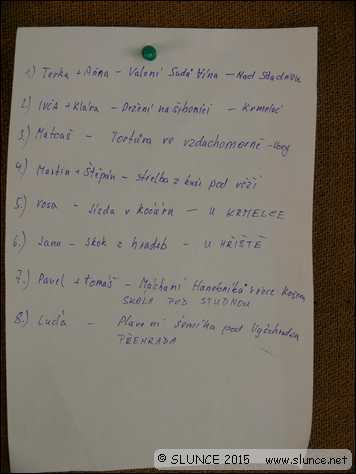 1.) Terka + Anna - Valení Sudů Vína - Nad Studnou
2.) Ivča + Klára - Držení na šibenici - Krmelec
3.) Matouš - Tortura ve vzduchoměrně -
4.) Martin + Štěpán - střelba z kuší pod věží
5.) Vosa - Jízda v kočáru - U KRMELCE
6.) Jana - skok z hradeb - U HŘIŠTĚ
7.) Pavel + Tomáš - Máchání Hanebníků v řece
SKÁLA POD STUDNOU
8.) Lucia - Plavení šeníka pod
PŘEHRADA
© SLUNCE 2015 www.slunce.net